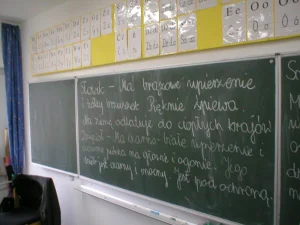 Słowik - Ma brązowe upierzenie
i żółty brzuszek. Pięknie śpiewa
Na zimę odlatuje do ciepłych krajów
Dzięcioł - Ma czarno-białe upierzenie i
czerwone piórka na głowie i ogonie. Jego
jest czarny i mocny. Jest pod ochroną.